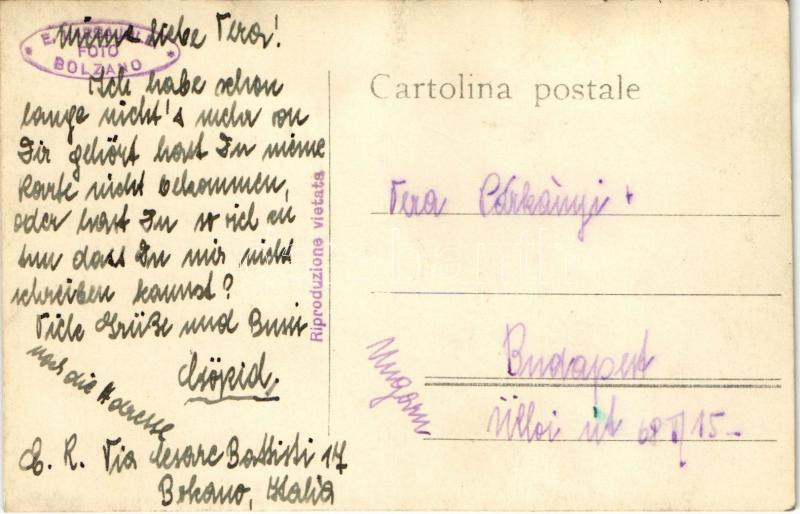 Meine liebe Vera!
E.
FOTO
BOLZANO
Ich habe schon
lange nicht's mehr von
Dir gehört hast Du meine
Karte nicht bekommen,
oder hast Du so viel zu
tun dass Du mir nicht
schreiben kannst?
Viele Grüße und Bussi
Csöpid,
noch die Adresse
E. R. Via Cesare Battisti 17
Bolzano, Italia
Riproduzione vietata
Cartolina postale
Vera Párkányi
Budapest
Ungarn
Üllői út 68 I/15-